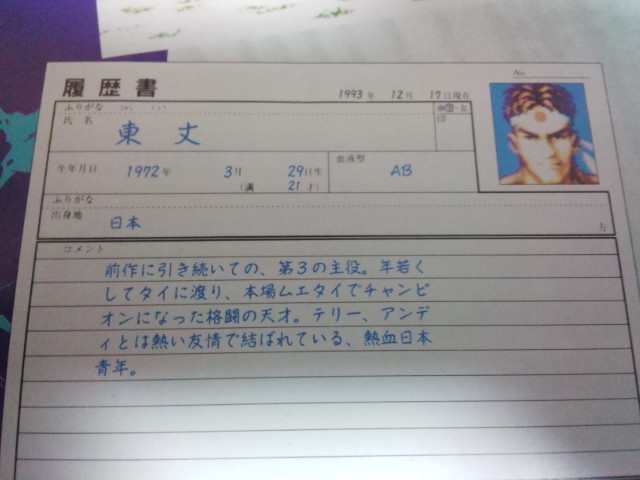 No.
履歴書
1993年 12月 17日現在
ふりがな
氏名 東 丈
男・女
印
生年月日 1972年 3月 29日生
(満 21才)
血液型 AB
ふりがな
出身地 日本
コメント
前作に引き続いての、第3の主役。年若く
してタイに渡り、本場ムエタイでチャンピ
オンになった格闘の天才。テリー、アンデ
ィとは熱い友情で結ばれている、熱血日本
青年。